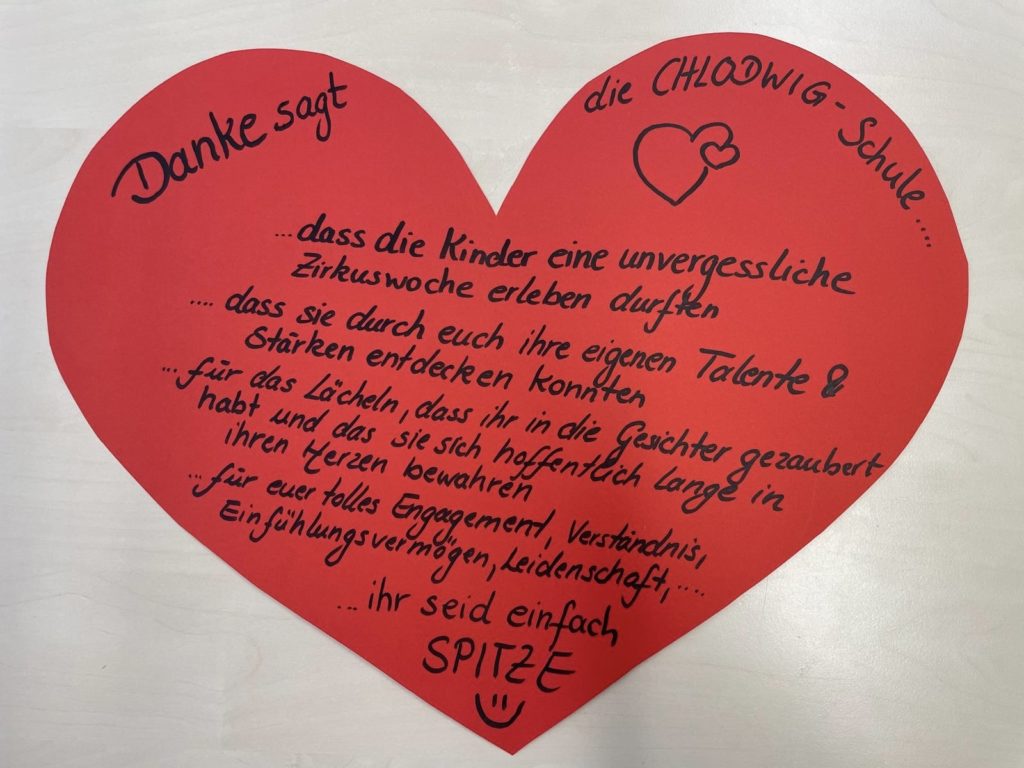 Danke sagt
die CHLODWIG-Schule....
...dass die Kinder eine unvergessliche
Zirkuswoche erleben durften
.... dass sie durch euch ihre eigenen Talente &
Stärken entdecken konnten
...für das Lächeln, dass ihr in die Gesichter gezaubert
habt und das sie sich hoffentlich lange in
ihren Herzen bewahren
...für euer tolles Engagement, Verständnis,
Einfühlungsvermögen, Leidenschaft,....
...ihr seid einfach
SPITZE